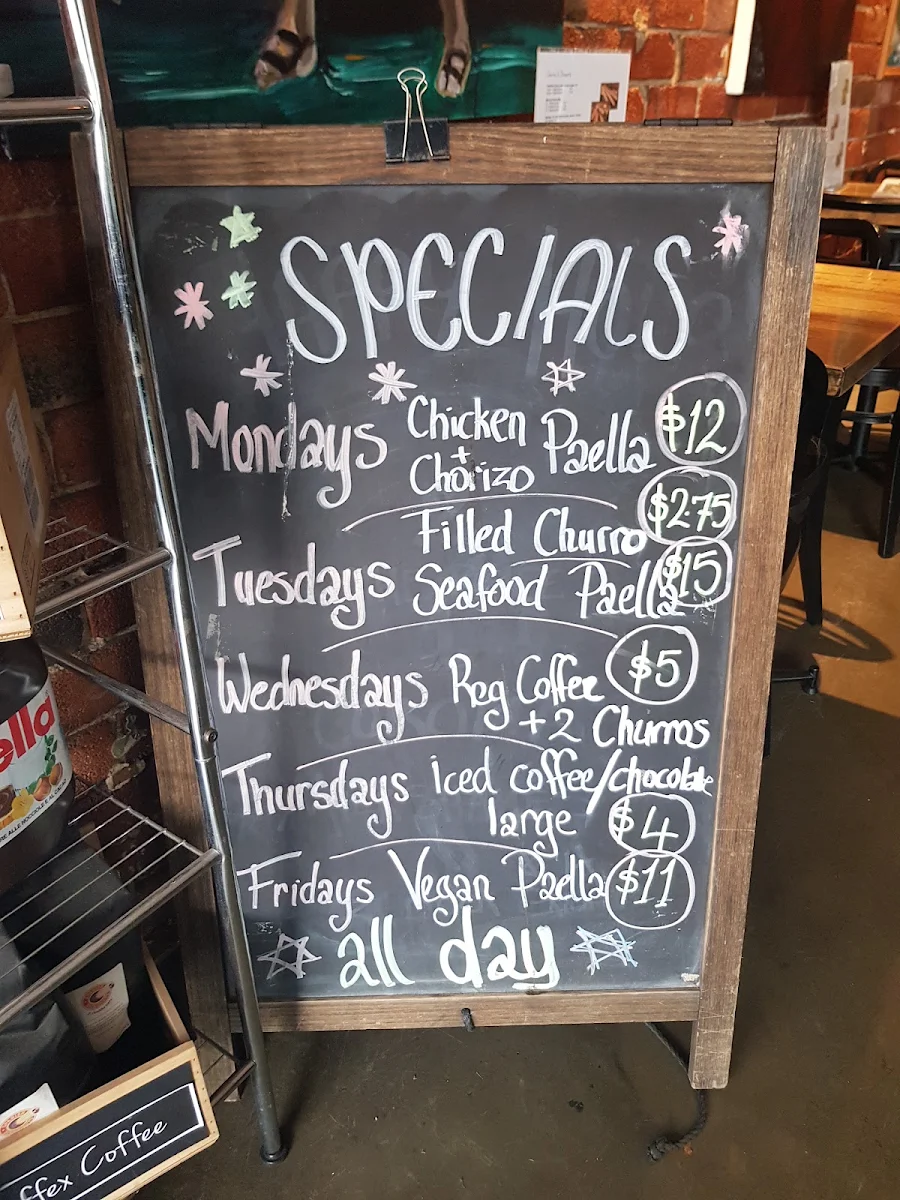 SPECIALS
Mondays Chicken + Chorizo Paella $12
Tuesdays Filled Churro $2.75
Seafood Paella $15
Wednesdays Reg Coffee $5
+2 Churros
Thursdays iced coffee/chocolate
large $4
Fridays Vegan Paella $11
all day
ella
ffex Coffee